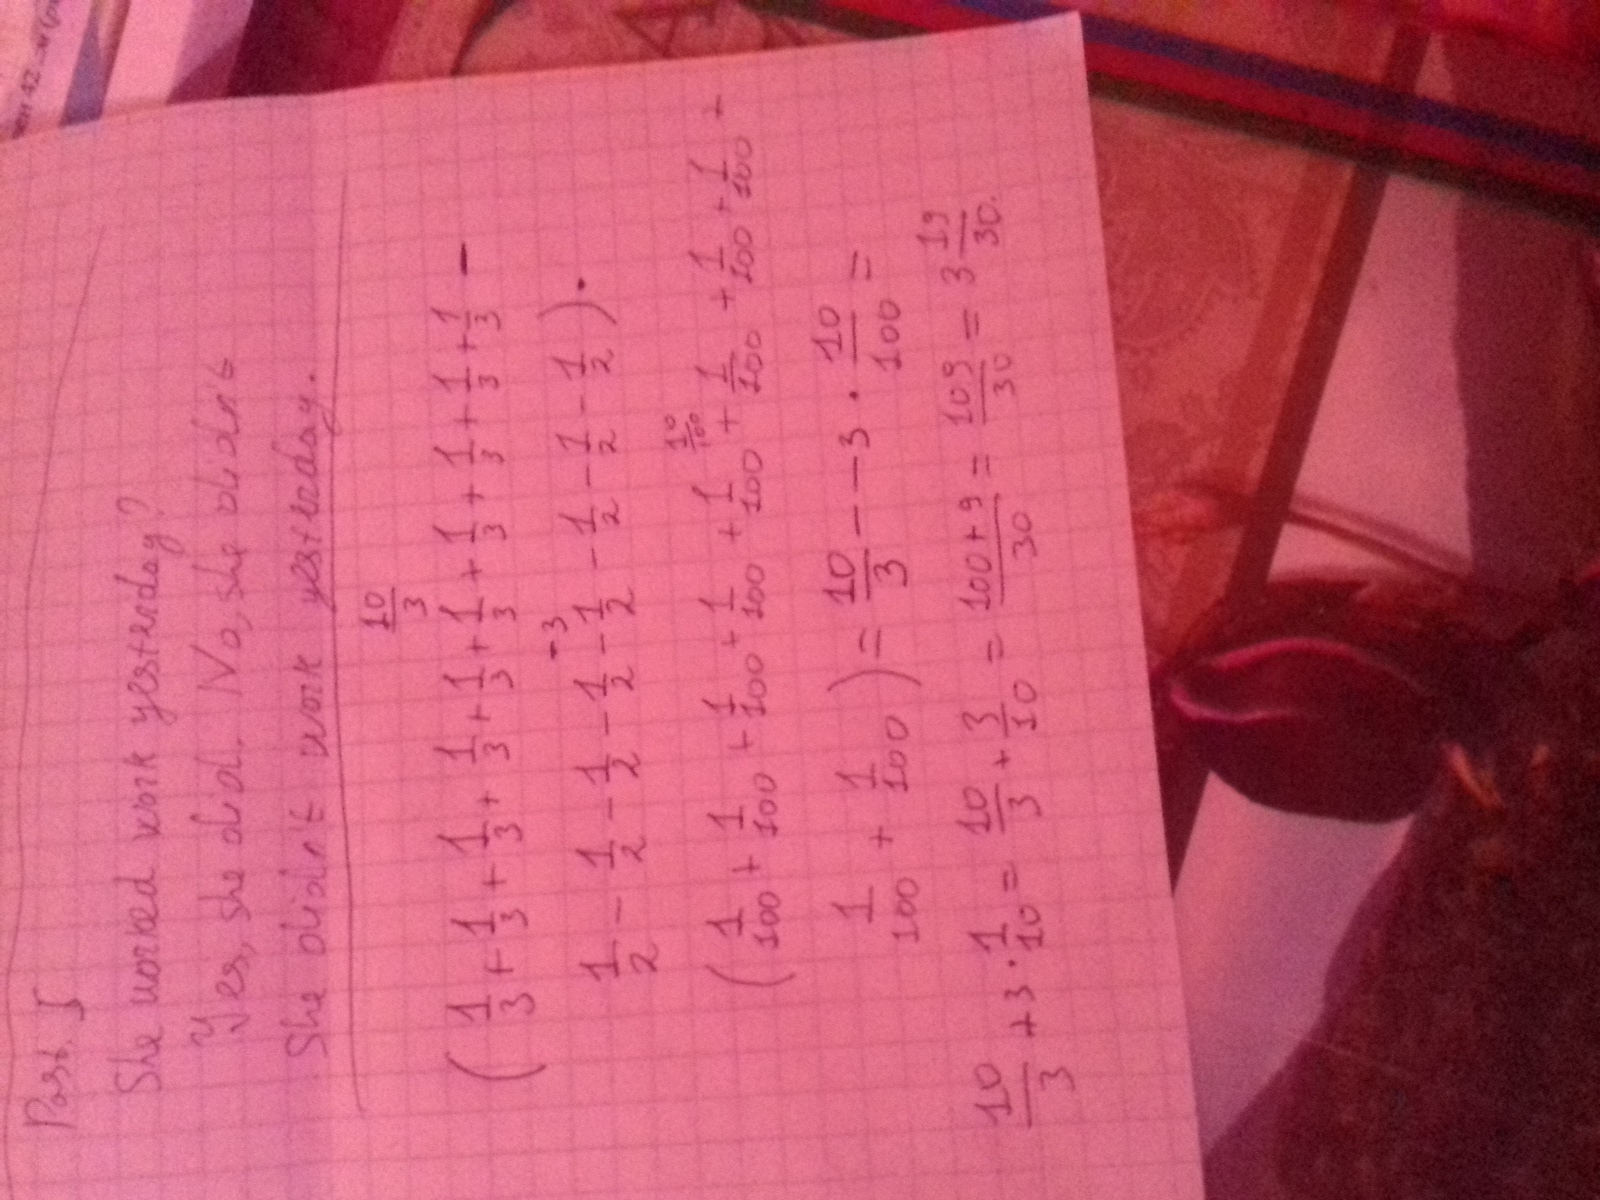 Past.
She worked work yesterday?
Yes, she did. No, she didn't
She didn't work yesterday.
10/3
(1/3 + 1/3 + 1/3 + 1/3 + 1/3 + 1/3 + 1/3 + 1/3 + 1/3 + 1/3 −
-3
1/2 - 1/2 - 1/2 - 1/2 - 1/2 - 1/2 - 1/2 - 1/2) ·
10/100
(1/100 + 1/100 + 1/100 + 1/100 + 1/100 + 1/100 + 1/100 + 1/100 +
1/100 + 1/100) = 10/3 - - 3 · 10/100 =
10/3 + 3 · 1/10 = 10/3 + 3/10 = 100+9/30 = 109/30 = 3 19/30.